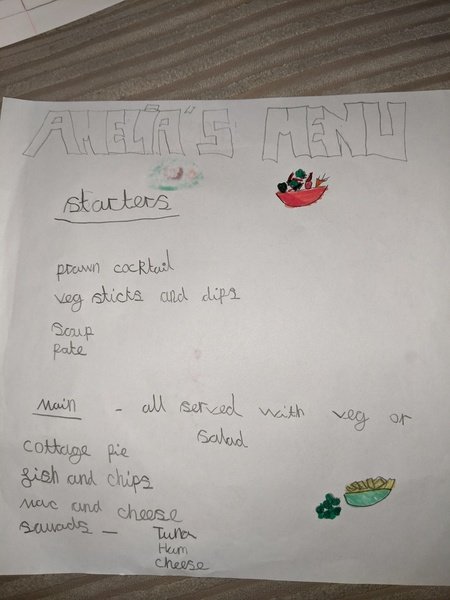 AMELIA'S MENU
starters
prawn cocktail
veg sticks and dips
Soup
pate
Main - all served with veg or
salad
cottage pie
fish and chips
mac and cheese
salads - Tuna
Ham
cheese